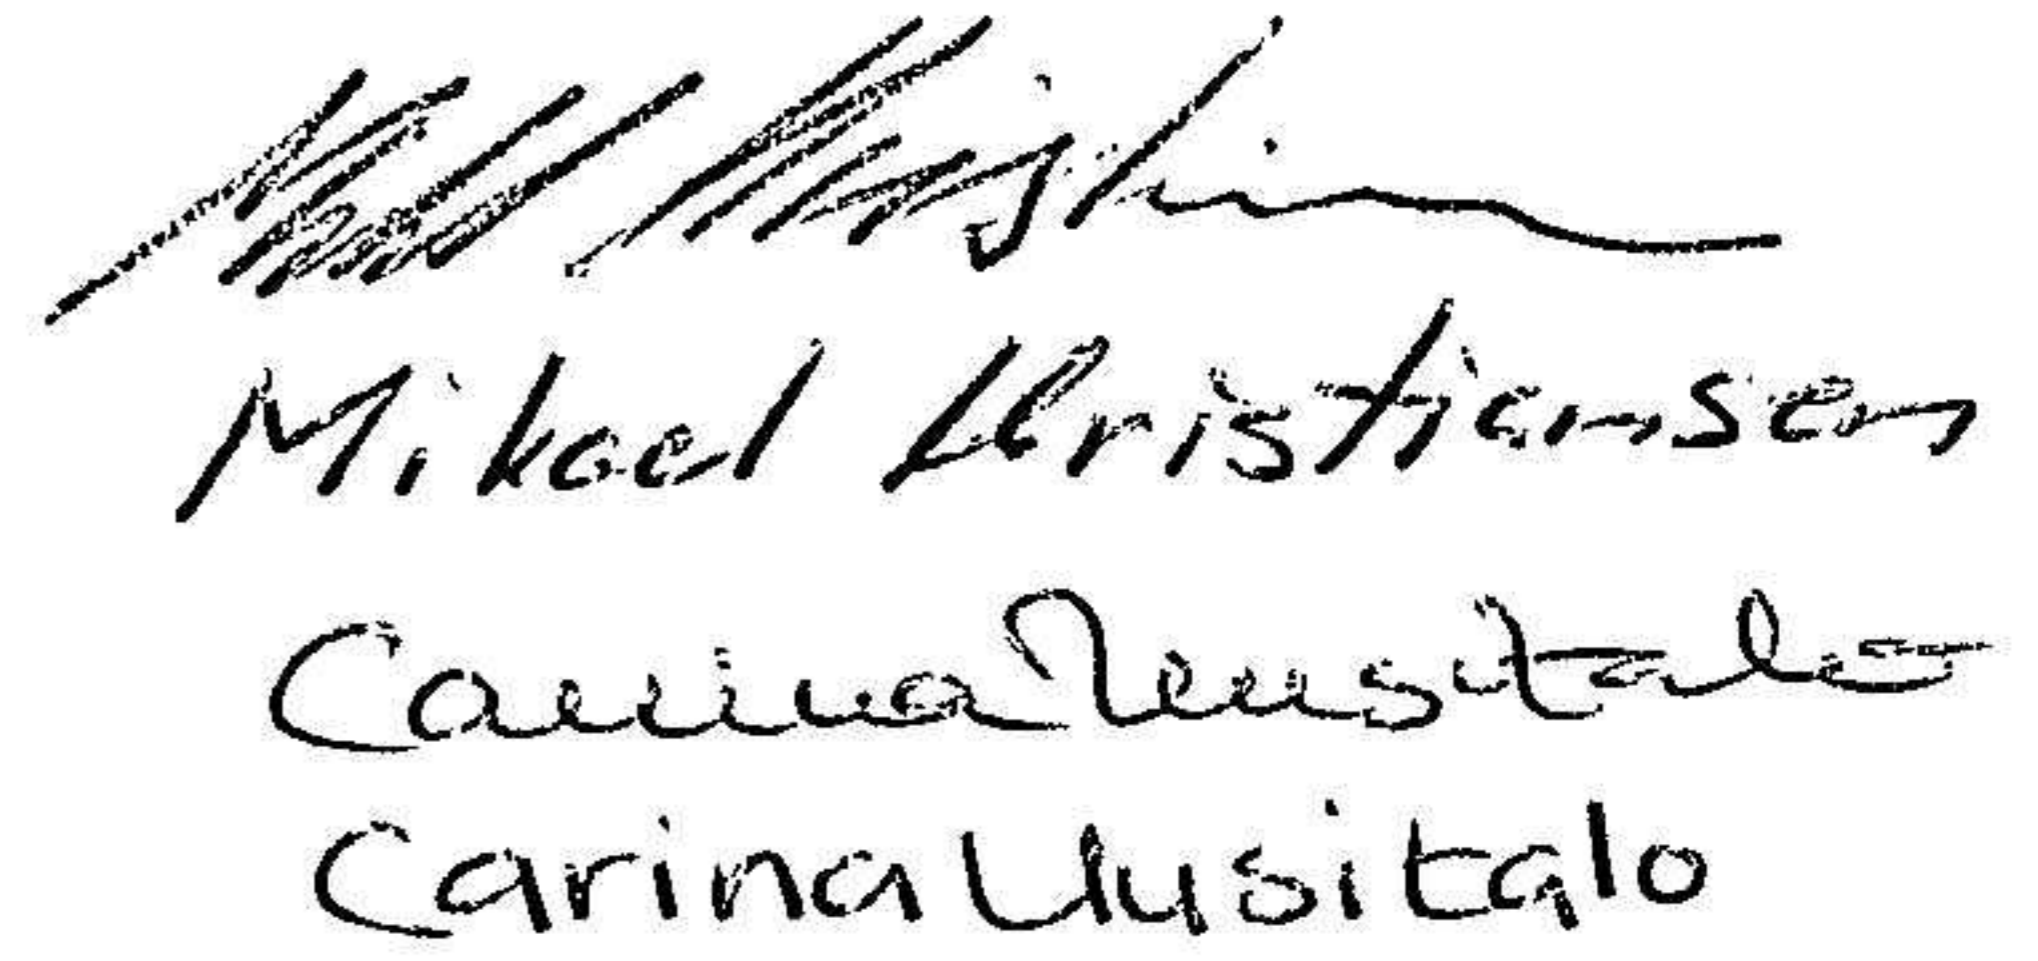 Mikael Kristiansen
Carina Uusitalo
Carina Uusitalo